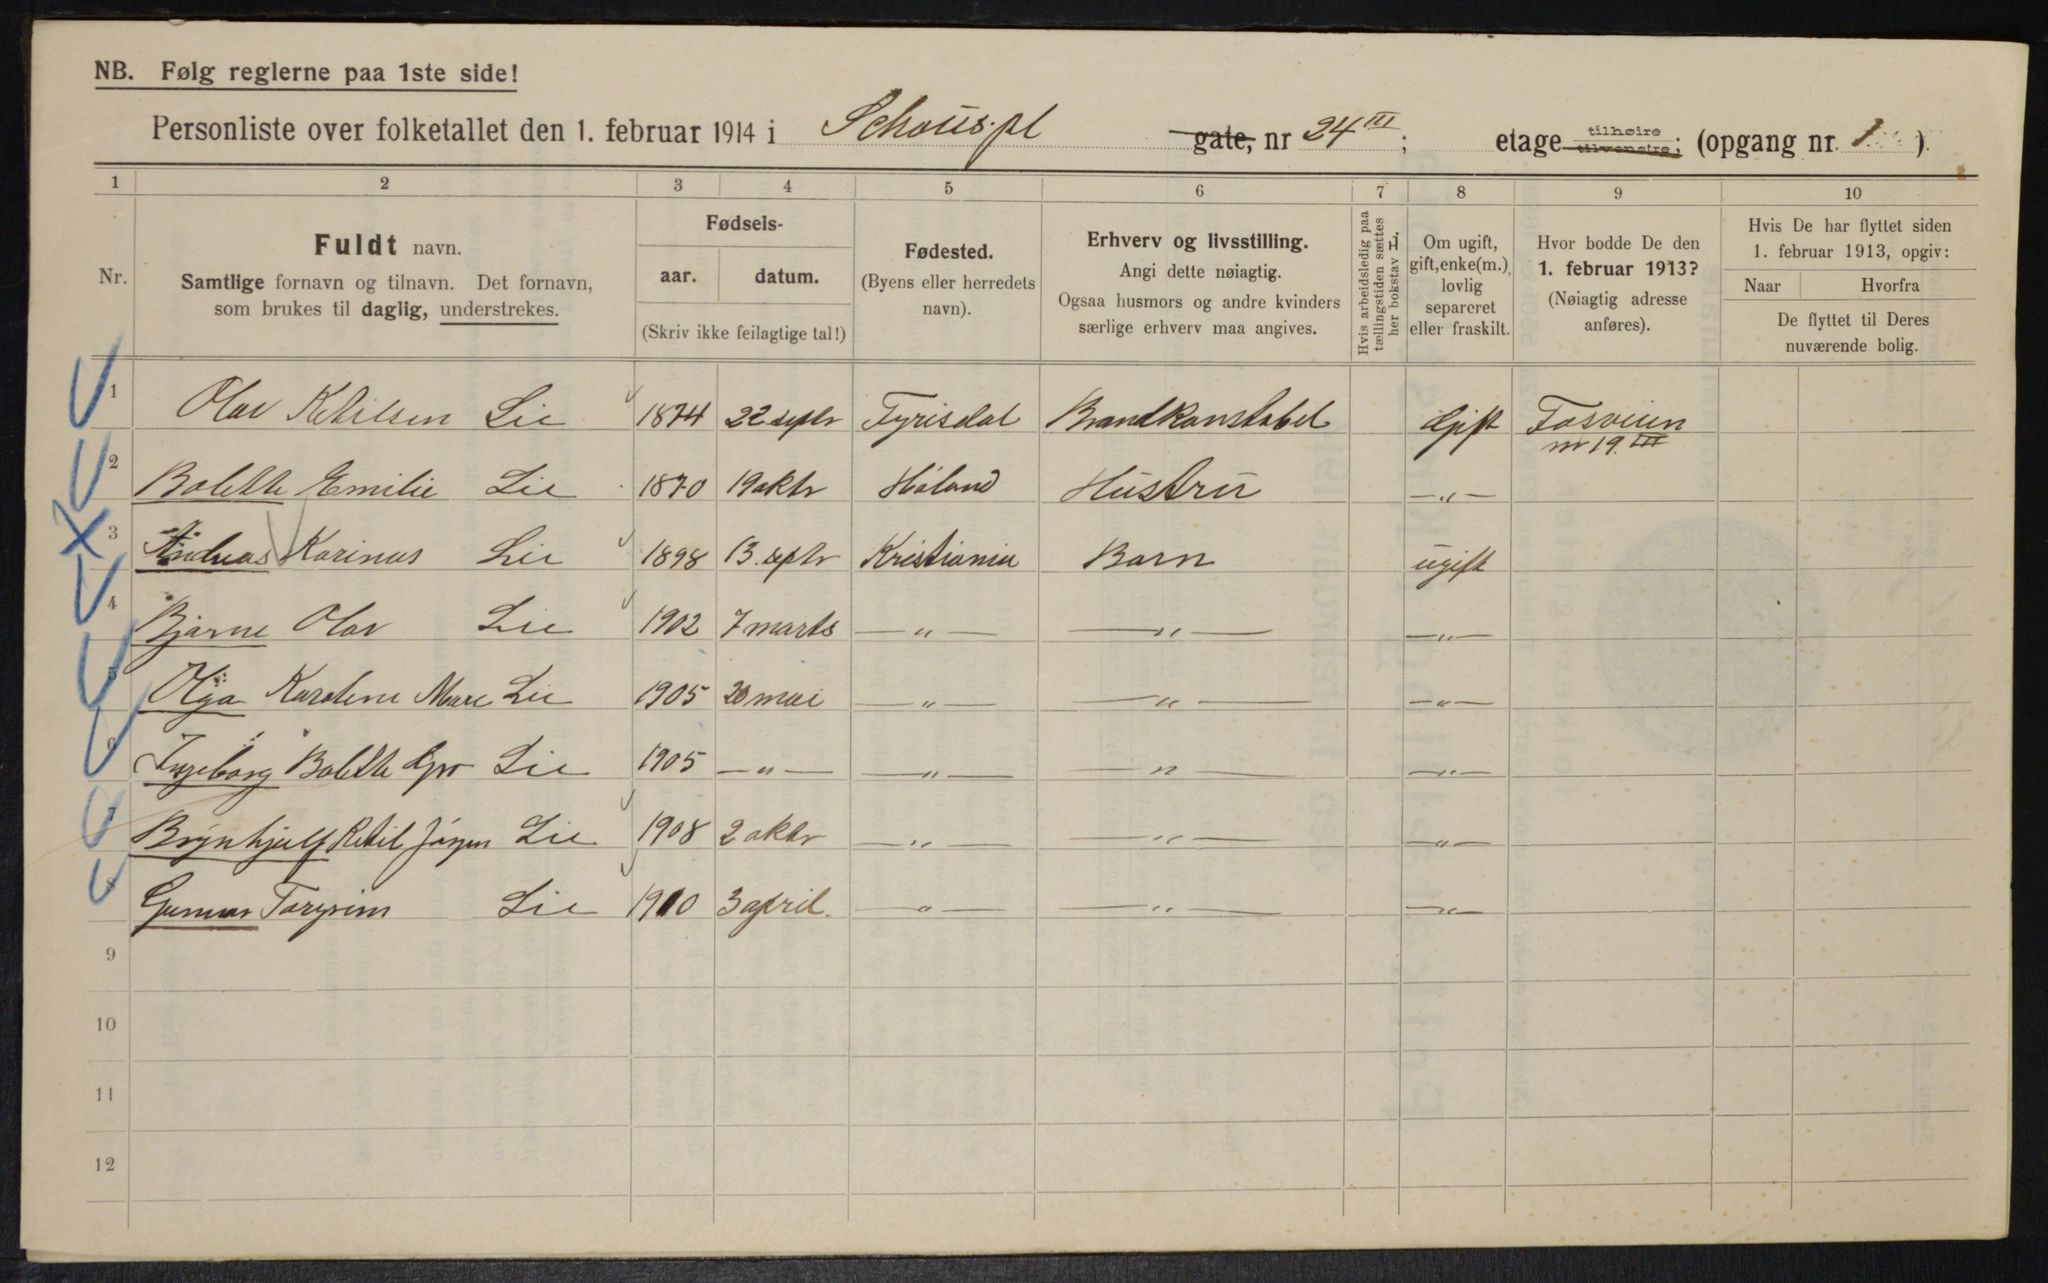 NB. Følg reglerne paa 1ste side!
Personliste over folketallet den 1. februar 1914 i Schous.pl gate, nr 24 III; etage tilhøire tilvenstre; (opgang nr. 1 ).
1 2 3 4 5 6 7 8 9 10
Nr.
Fuldt navn.
Samtlige fornavn og tilnavn. Det fornavn,
som brukes til daglig, understrekes.
Fødsels-
aar. datum.
(Skriv ikke feilagtige tal!)
Fødested.
(Byens eller herredets
navn).
Erhverv og livsstilling.
Angi dette nøiagtig.
Ogsaa husmors og andre kvinders
særlige erhverv maa angives.
Hvis arbeidsledig paa
tællingstiden sættes
her bokstav L.
Om ugift,
gift, enke(m.),
lovlig
separeret
eller fraskilt.
Hvor bodde De den
1. februar 1913?
(Nøiagtig adresse
anføres).
Hvis De har flyttet siden
1. februar 1913, opgiv:
Naar Hvorfra
De flyttet til Deres
nuværende bolig.
1 Olav Ketilsen Lie 1874 22 septr Tyrisdal Brandkonstabel Gift Tosveien
nr 19. III
2 Bolette Emilie Lie 1870 19 oktr Høland Hustru —"—
3 Andreas Karinus Lie 1898 13. septr Kristiania Barn ugift
4 Bjarne Olav Lie 1902 7 marts —"— —"— —"—
5 Olga Karoline Marie Lie 1905 20 mai —"— —"— —"—
6 Ingeborg Bolette Gro Lie 1905 —"— —"— —"— —"—
7 Brynhjulf Ketil Jörgen Lie 1908 2 oktr —"— —"— —"—
8 Gunnar Torgrim Lie 1910 3 april. —"— —"— —"—
9
10
11
12